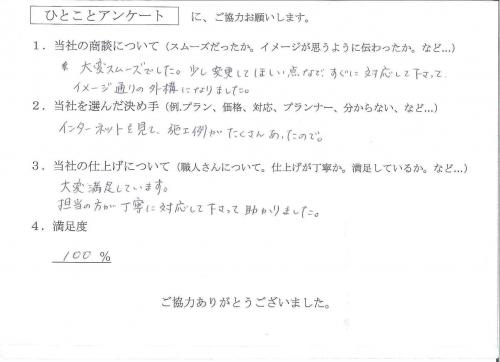 ひとことアンケート に、ご協力お願いします。
1．当社の商談について（スムーズだったか。イメージが思うように伝わったか。など…）
大変スムーズでした。少し変更してほしい点などすぐに対応して下さって、
イメージ通りの外構になりました。
2．当社を選んだ決め手（例.プラン、価格、対応、プランナー、分からない、など…）
インターネットを見て、施工例がたくさんあったので。
3．当社の仕上げについて（職人さんについて。仕上げが丁寧か。満足しているか。など…）
大変満足しています。
担当の方が丁寧に対応して下さって助かりました。
4．満足度
100 %
ご協力ありがとうございました。